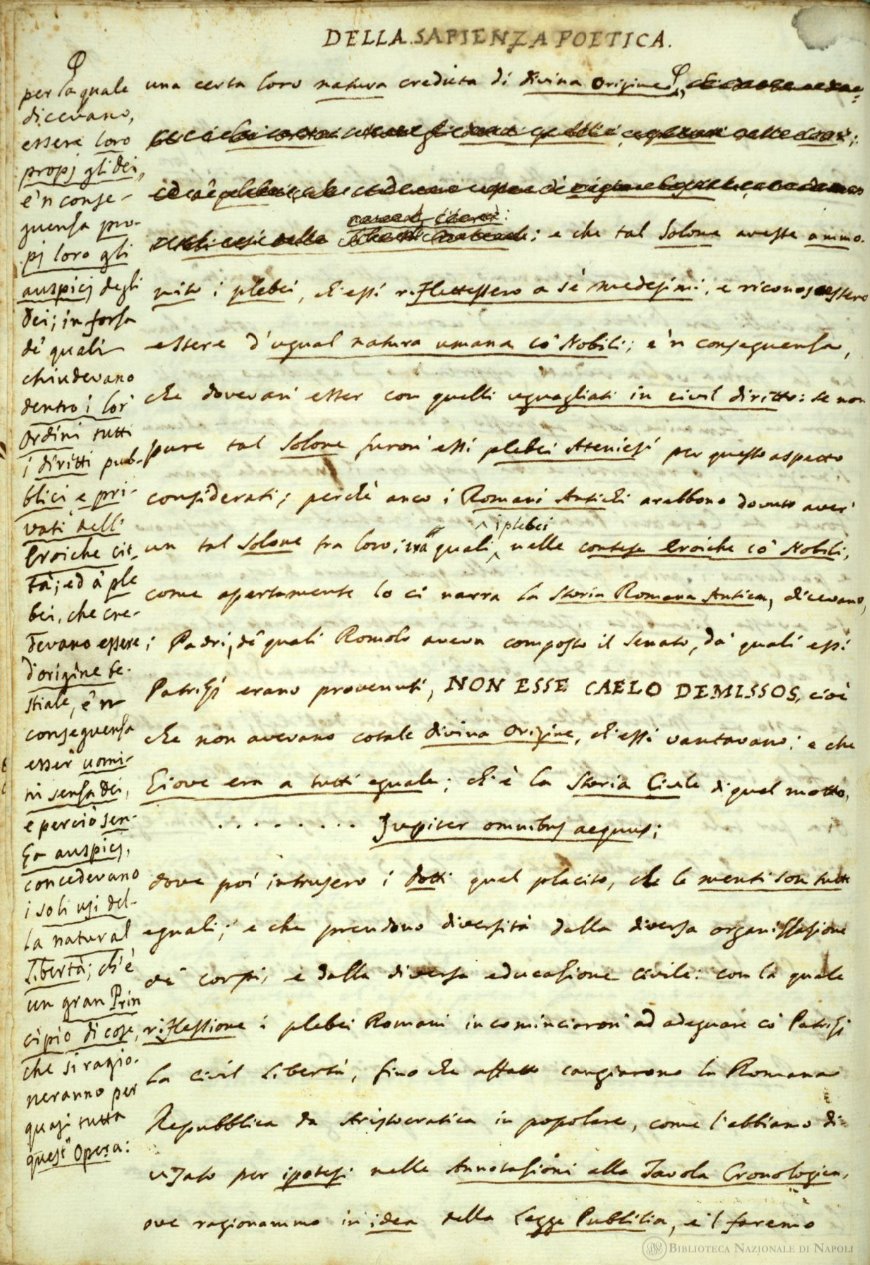 DELLA SAPIENZA POETICA.
una certa loro natura creduta di divina Origine,
; e che tal Solone avesse ammo-
nito i plebei, ch'essi riflettessero a sè medesimi, e riconoscessero
essere d'ugual natura umana co' Nobili; e 'n conseguenza,
che dovevan' esser con quelli uguagliati in civil diritto: se non
pure tal Solone furon' essi plebei Ateniesi per questo aspetto
considerati; perchè anco i Romani Antichi arebbono dovuto aver'
i plebei
un tal Solone fra loro; tra' quali nelle contese Eroiche co' Nobili,
come apertamente lo ci narra la Storia Romana Antica, dicevano,
i Padri, de' quali Romolo aveva composto il Senato, da' quali essi
Patrizj erano provenuti, NON ESSE CAELO DEMISSOS, cioè
che non avevano cotale divina Origine, ch'essi vantavano; e che
Giove era a tutti eguale; ch'è la Storia Civile di quel motto,
. . . . . . . . Jupiter omnibus aequus;
dove poi intrusero i dotti quel placito, che le menti son tutte
eguali; e che prendono diversità dalla diversa organizzazione
de' corpi, e dalla diversa educazione civile: con la quale
riflessione i plebei Romani incominciaron' ad adeguare co' Patrizj
la civil Libertà, fino che affatto cangiarono la Romana
Repubblica da Aristocratica in popolare, come l'abbiamo di-
visato per ipotesi nelle Annotazioni alla Tavola Cronologica,
ove ragionammo in idea della Legge Publilia, e 'l faremo
per la quale
dicevano,
essere loro
propj gli dei,
e 'n conse-
guenza pro-
pj loro gli
auspicj degli
dei; in forza
de' quali
chiudevano
dentro i lor'
Ordini tutti
i diritti pub-
blici e pri-
vati dell'
Eroiche Cit-
tà; ed a' ple-
bei, che cre-
devano essere
d'origine be-
stiale, e 'n
conseguenza
esser' uomi-
ni senza dei,
e perciò sen-
za auspicj,
concedevano
i soli usi del-
la natural
Libertà; ch'è
un gran Prin-
cipio di cose,
che si ragio-
neranno per
quasi tutta
quest' Opera:
BIBLIOTECA NAZIONALE DI NAPOLI